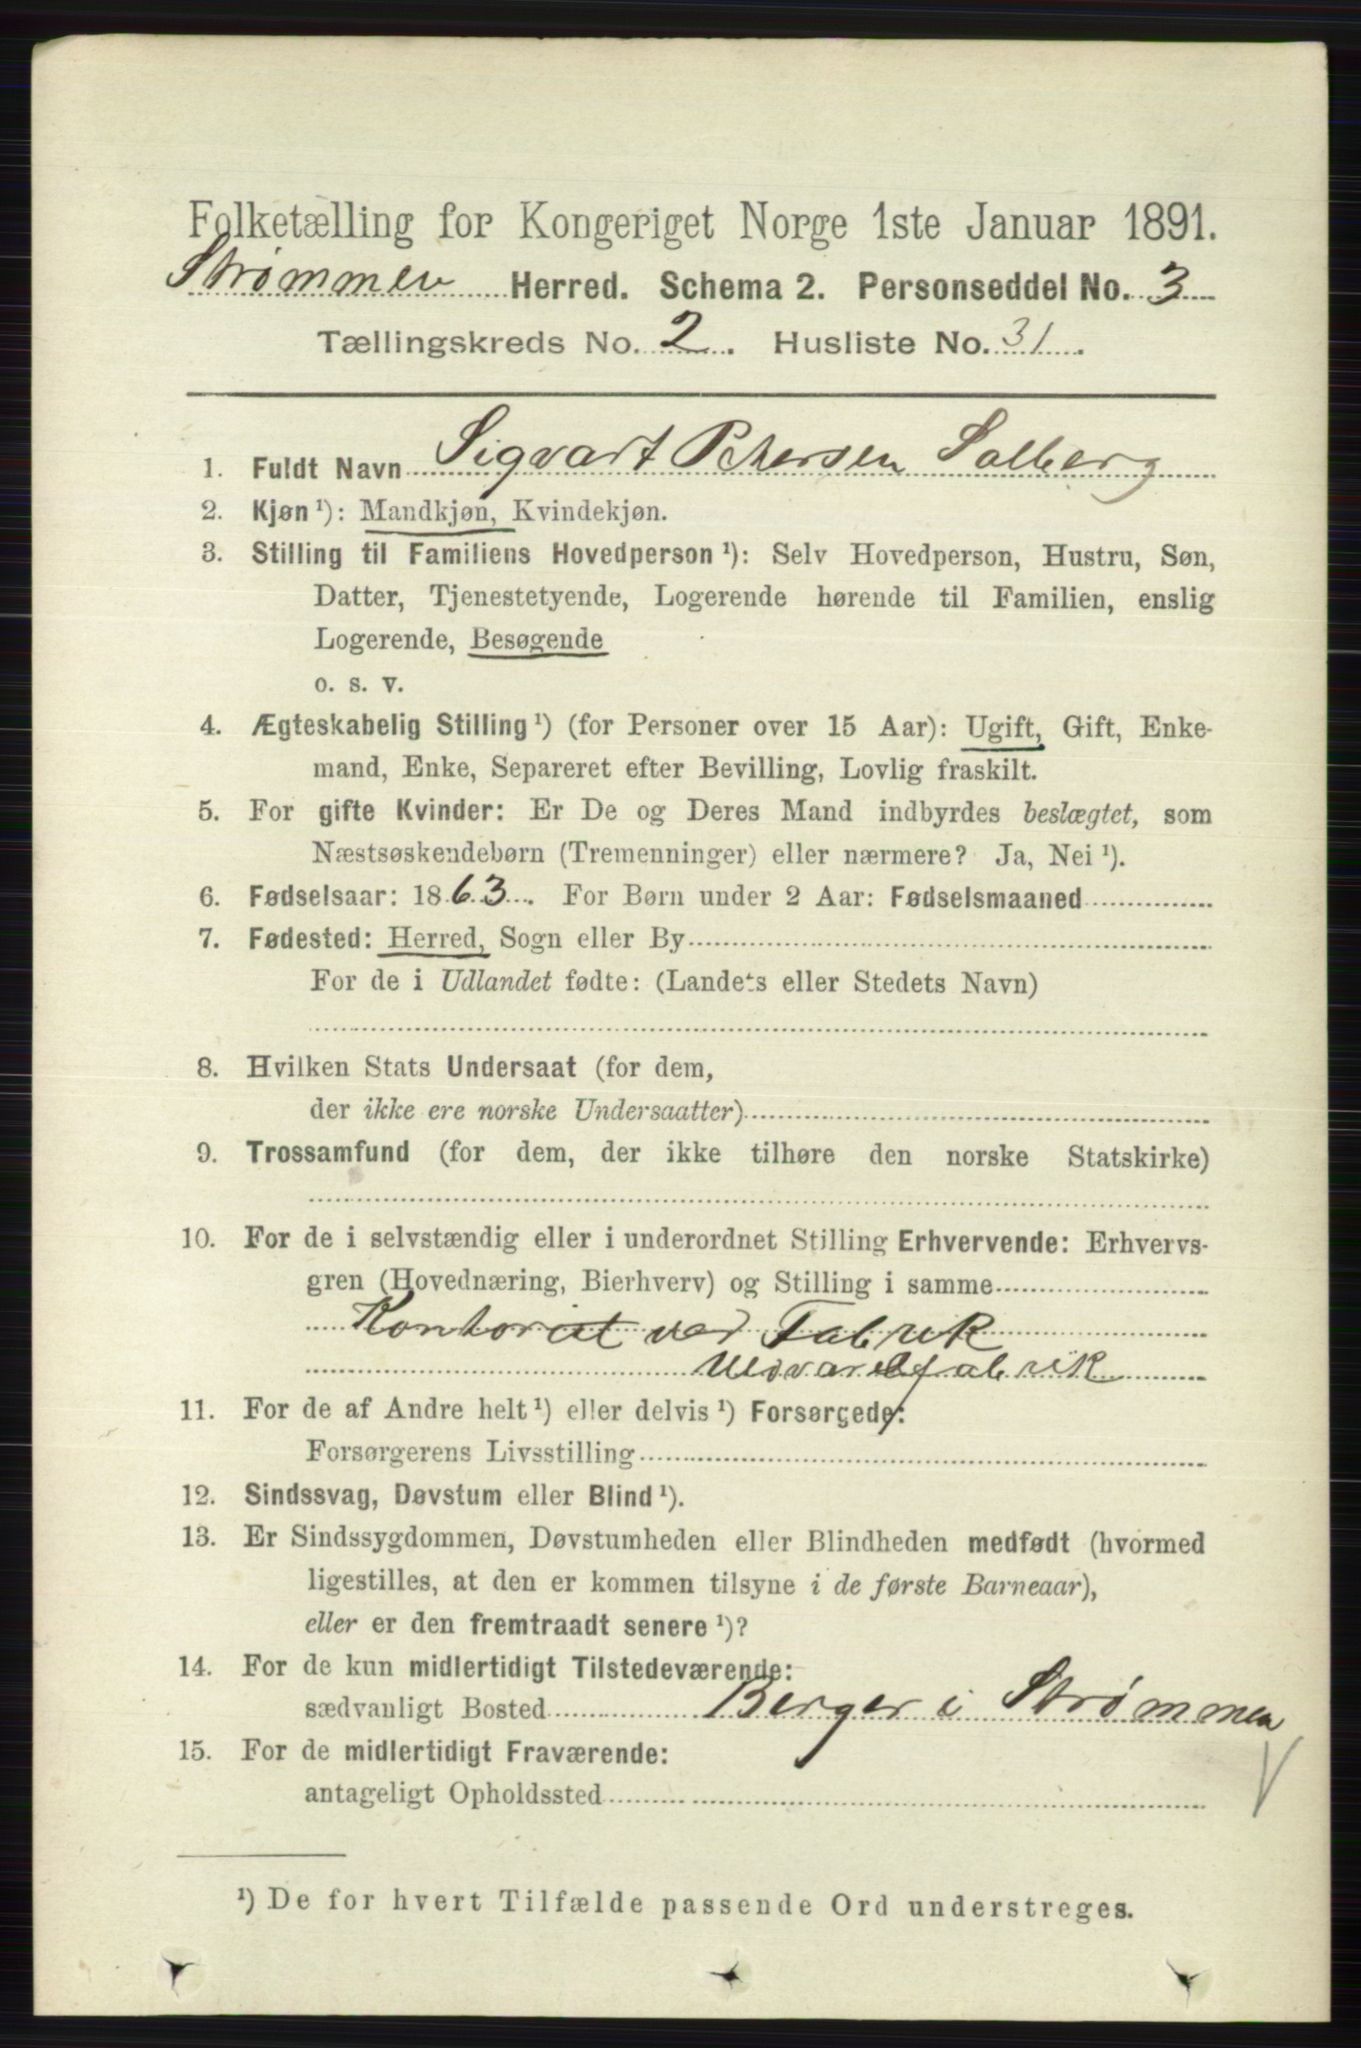 Folketælling for Kongeriget Norge 1ste Januar 1891.
Strømmen Herred. Schema 2. Personseddel No. 3
Tællingskreds No. 2. Husliste No. 31.
1. Fuldt Navn Sigvart Petersen Solberg
2. Kjøn ¹): Mandkjøn, Kvindekjøn.
3. Stilling til Familiens Hovedperson ¹): Selv Hovedperson, Hustru, Søn,
Datter, Tjenestetyende, Logerende hørende til Familien, enslig
Logerende, Besøgende
o. s. v.
4. Ægteskabelig Stilling ¹) (for Personer over 15 Aar): Ugift, Gift, Enke-
mand, Enke, Separeret efter Bevilling, Lovlig fraskilt.
5. For gifte Kvinder: Er De og Deres Mand indbyrdes beslægtet, som
Næstsøskendebørn (Tremenninger) eller nærmere? Ja, Nei ¹).
6. Fødselsaar: 1863. For Børn under 2 Aar: Fødselsmaaned
7. Fødested: Herred, Sogn eller By
For de i Udlandet fødte: (Landets eller Stedets Navn)
8. Hvilken Stats Undersaat (for dem,
der ikke ere norske Undersaatter)
9. Trossamfund (for dem, der ikke tilhøre den norske Statskirke)
10. For de i selvstændig eller i underordnet Stilling Erhvervende: Erhvervs-
gren (Hovednæring, Bierhverv) og Stilling i samme
Kontorist ved Fabrik
Uldvarefabrik
11. For de af Andre helt ¹) eller delvis ¹) Forsørgede:
Forsørgerens Livsstilling
12. Sindssvag, Døvstum eller Blind ¹).
13. Er Sindssygdommen, Døvstumheden eller Blindheden medfødt (hvormed
ligestilles, at den er kommen tilsyne i de første Barneaar),
eller er den fremtraadt senere ¹)?
14. For de kun midlertidigt Tilstedeværende:
sædvanligt Bosted Berger i Strømmen
15. For de midlertidigt Fraværende:
antageligt Opholdssted
¹) De for hvert Tilfælde passende Ord understreges.